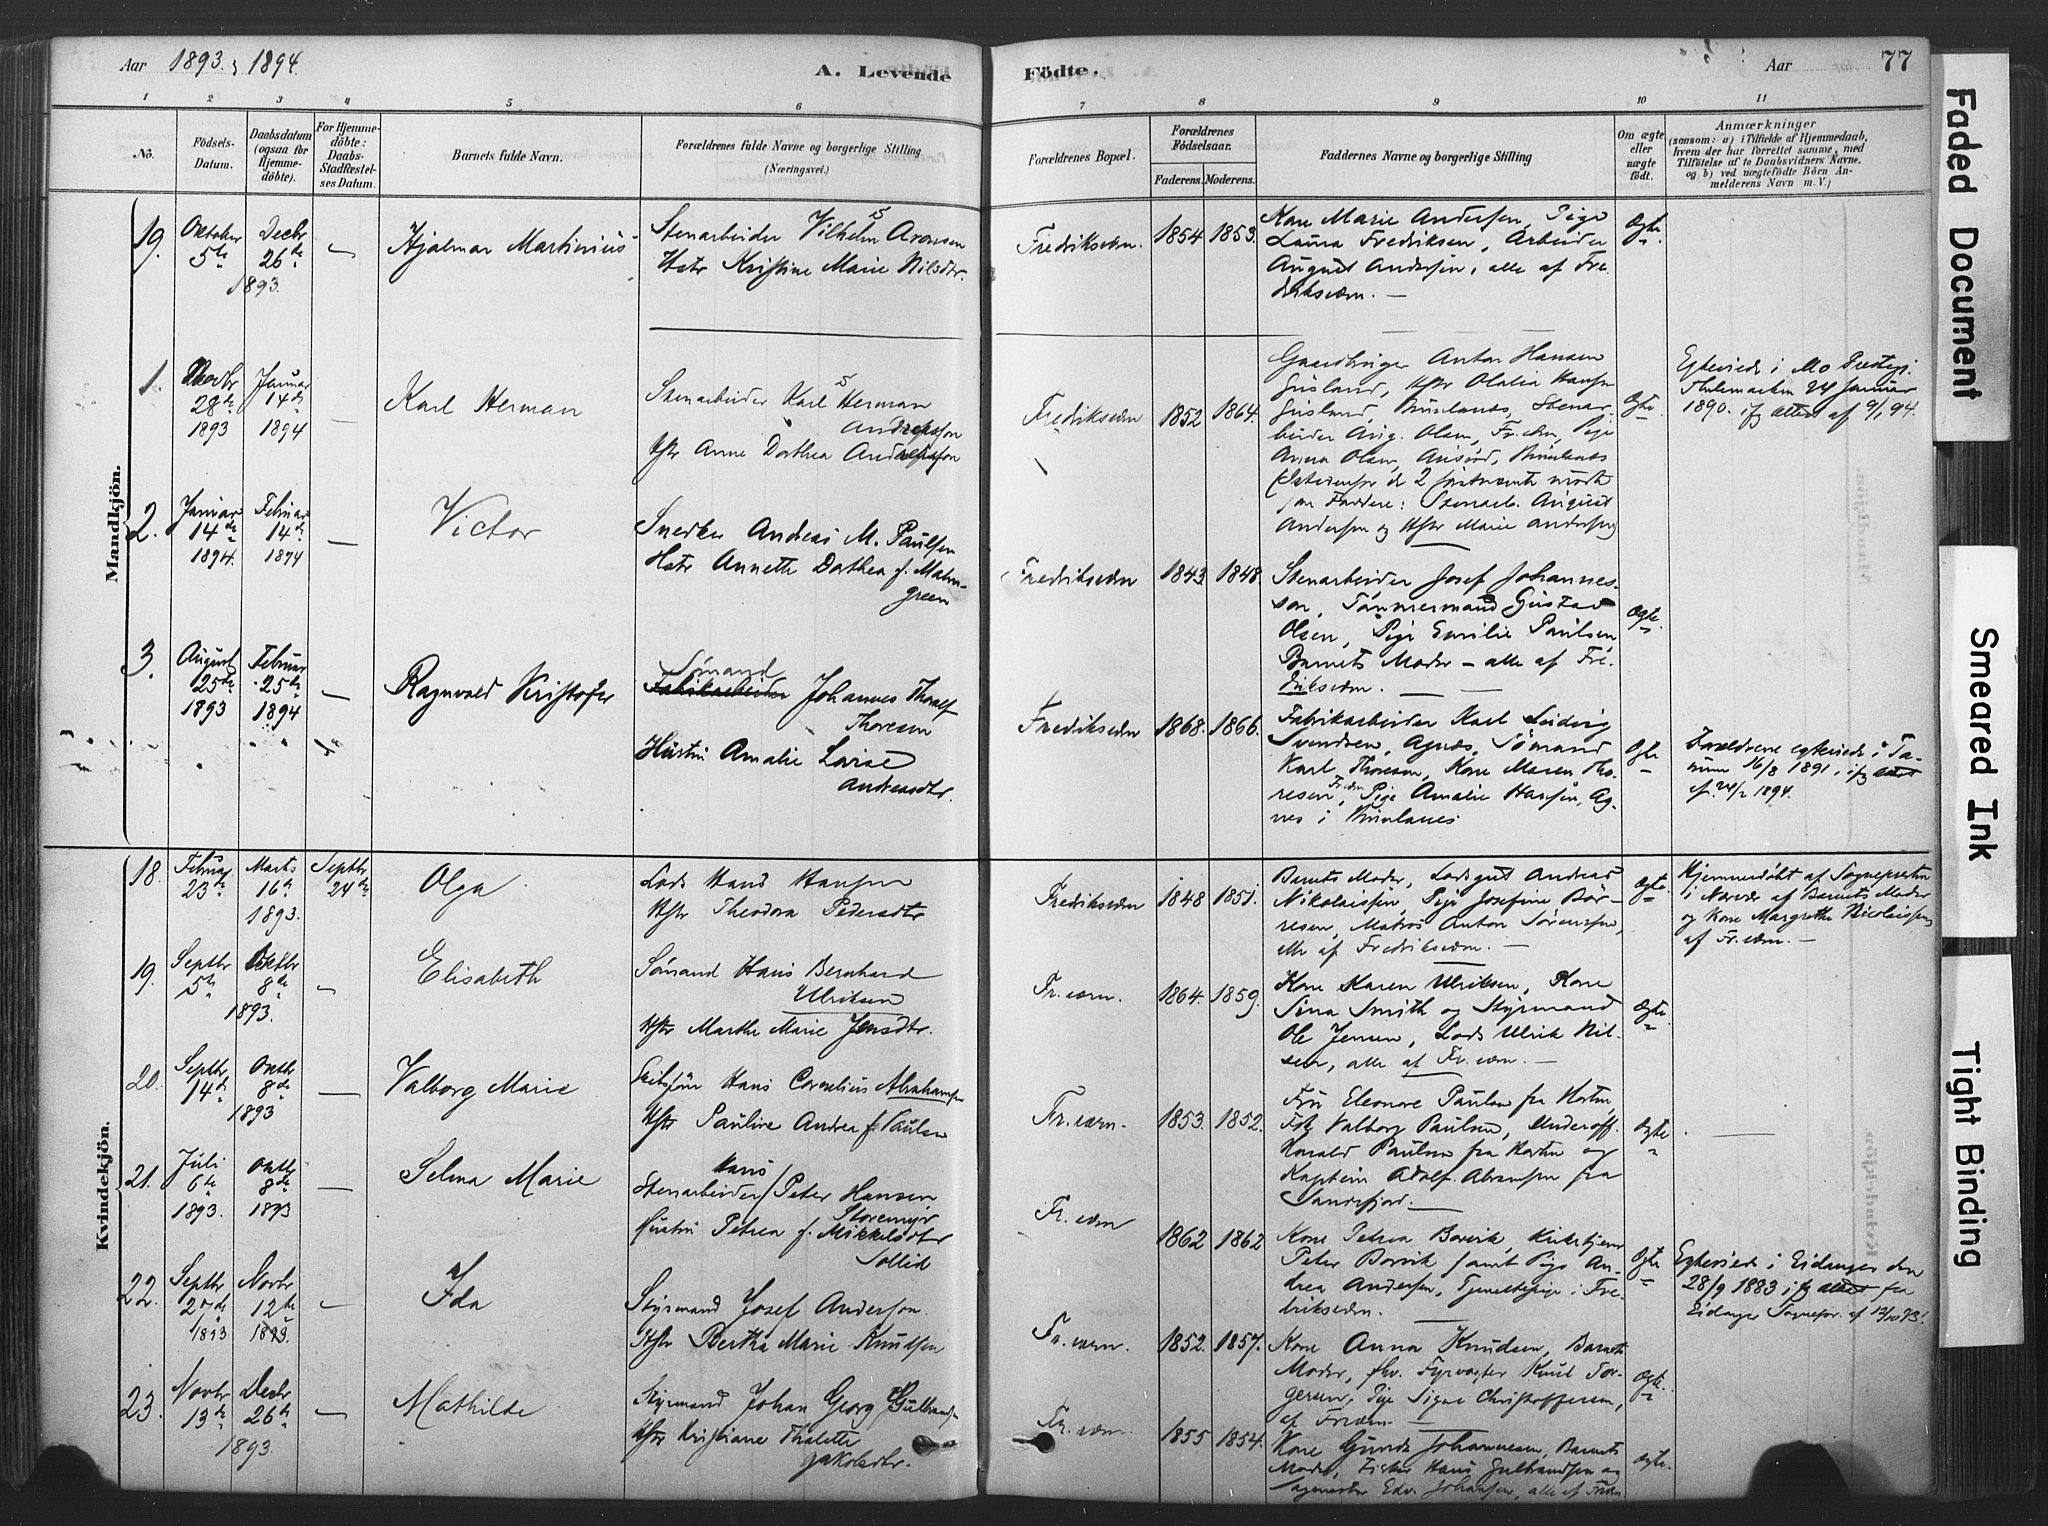 Aar 1893 & 1894.
A. Levende Födte.
Aar 77
1 2 3 4 5 6 7 8 9 10 11
No.
Födsels-Datum.
Daabsdatum (ogsaa for Hjemmedöbte).
For Hjemmedöbte: Daabs-Stadfæstelses Datum.
Barnets fulde Navn.
Forældrenes fulde Navne og borgerlige Stilling
(Næringsvei.)
Forældrenes Bopæl.
Forældrenes Födselsaar.
Faderens. Moderens.
Faddernes Navne og borgerlige Stilling
Om ægte eller uægte födt.
Anmærkninger
(saasom: a) i Tilfælde af Hjemmedaab,
hvem der har forrettet samme, med
Tilföielse af to Daabsvidners Navne.
og b) ved uægtefödte Börn An-
melderens Navn m. V.)
Mandkjön.
19. Oktober 5te Decbr 26de 1893. —
Hjalmar Martinius
Stenarbeider Vilhelm Aronsen
Hstr Kristine Marie Nilsdtr.
Fredriksværn. 1854 1853.
Kone Marie Andersen, Pige
Laura Fredriksen, Arbeider
August Andersen, alle af Fre-
driksværn. —
Ægte
1. Novbr 28de 1893 Januar 14de 1894 —
Karl Herman
Stenarbeider Karl Herman
Andreasson
Hstr Anne Dorthea Andreasson
Fredriksværn 1852 1864.
Gaardbruger Anton Hansen
Gusland, Hstr Olalia Hansen
Gusland, Brunlanæs, Stenar-
beider Aug. Olsen, Fr.værn, Pige
Anna Olsen, Brunlanæs
(Istedenfor de 2 förstnævnte mödte
som Faddere: Stenarb. August
Andersen og Hstr Marie Andersen)
Ægte
Egteviede i Mo Prestegj.
Thelemarken 24 Januar
1890. jfr attest af 9/1 94.
2. Januar 14de 1894. Februar 14de 1894 —
Victor
Snedker Andreas M. Paulsen
Hstr Annette Dorthea f. Malm-
green
Fredriksværn 1843 1848
Stenarbeider Josef Johannes-
son, Tömmermand Gustav
Olsen, Pige Emilie Paulsen
Barnets Moder — alle af Fre-
driksværn. —
Ægte
3. August 25de 1893 Februar 25de 1894 —
Ragnvald Kristofer
Sömand
Fabrikarbeider Johannes Thoralf
Thoresen
Hustru Amalie Lovise
Andreasdtr.
Fredriksværn 1868. 1866.
Fabrikarbeider Karl Ludvig
Svendsen, Agnæs, Sömand
Karl Thoresen, Kone Maren Tho-
resen Fr.værn, Pige Amalie Hansen, Ag-
næs i Brunlanæs
Ægte
Forældrene egteviede i Ta-
num 16/8 1891, jfr attest
af 24/2 1894.
Kvindekjön.
18. Februar 23de Marts 16de 1893. Septbr 24de
Olga
Lods Hans Hansen
Hstr Theodora Pedersdtr
Fredriksværn 1848 1851.
Barnets Moder, Lodsgut Andreas
Nikolaissen, Pige Josefine Bör-
resen, Matros Anton Sörensen,
alle af Fredriksværn. —
Ægte
Hjemmedöbt af Sognepresten
i Nærvær af Barnets Moder
og Kone Margrethe Nicolaissen
af Fr.værn. —
19. Septbr 5te Oktbr 8de 1893. —
Elisabeth
Sömand Hans Bernhard
Ulriksen
Hstr Marthe Marie Jensdtr.
Fr.værn. 1864. 1859.
Kone Karen Ulriksen, Kone
Sina Smith og Styrmand
Ole Jensen, Lods Ulrik Nil-
sen, alle af Fr.værn. —
Ægte
20. Septbr 14de Oktb 8de 1893 —
Valborg Marie
Skibsförer Hans Cornelius Abrahamsen
Hstr Pauline Andrea f. Paulsen
Fr.værn. 1853. 1852.
Fru Eleonore Paulsen fra Horten,
Frk Valborg Paulsen, Underoff.
Harald Paulsen fra Horten og
Kaptein Adolf Abramsen fra
Sandefjord. —
Ægte —
21. Juli 6te 1893. Oktb 8de 1893 —
Selma Marie
Hans
Stenarbeider / Peter Hansen
Storemyr
Hustru Petrea f. Mikkelsdtr
Sollid
Fr.værn 1862 1862
Kone Petrea Borvik, Kirketjener
Peter Borvik samt Pige An-
drea Andersen, Tjenestepige i Fre-
driksværn.
Ægte
Egteviede i Eidanger den
28/9 1883 jfr attest fra
Eidanger Sognepr. af 13/10 93.
22. Septbr 27de 1893 Novbr 12te 1893. —
Ida
Styrmand Josef Anderson.
Hstr Bertha Marie Knudsen
Fr.værn. 1852. 1857.
Kone Anna Knudsen, Barnets
Moder, fhv. Fyrvogter Knut Tor-
gersen, Pige Signe Christoffersen,
af Fr.værn —
Ægte
23. Novbr 13de Decbr 26de 1893. —
Mathilde
Styrmand Johan Georg Gulbrandsen
Hstr Kristiane Thalette
Jakobsdtr.
Fr.værn. 1855 1854.
Kone Gunda Johannesen, Barnets
Moder, Fisker Hans Gulbrandsen og
Edv. Johansen, alle af Frværn
Ægte.
Faded Document
Smeared Ink
Tight Binding